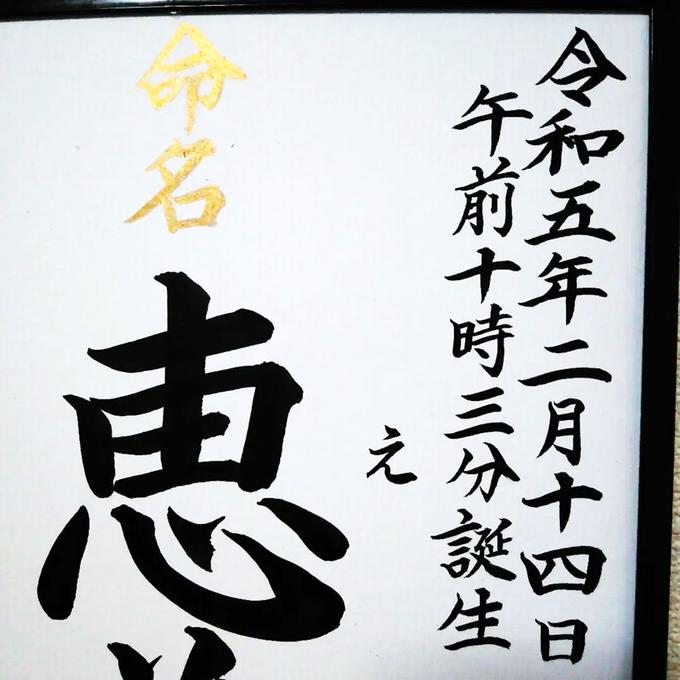 令和五年二月十四日
午前十時三分誕生
え
命名
恵